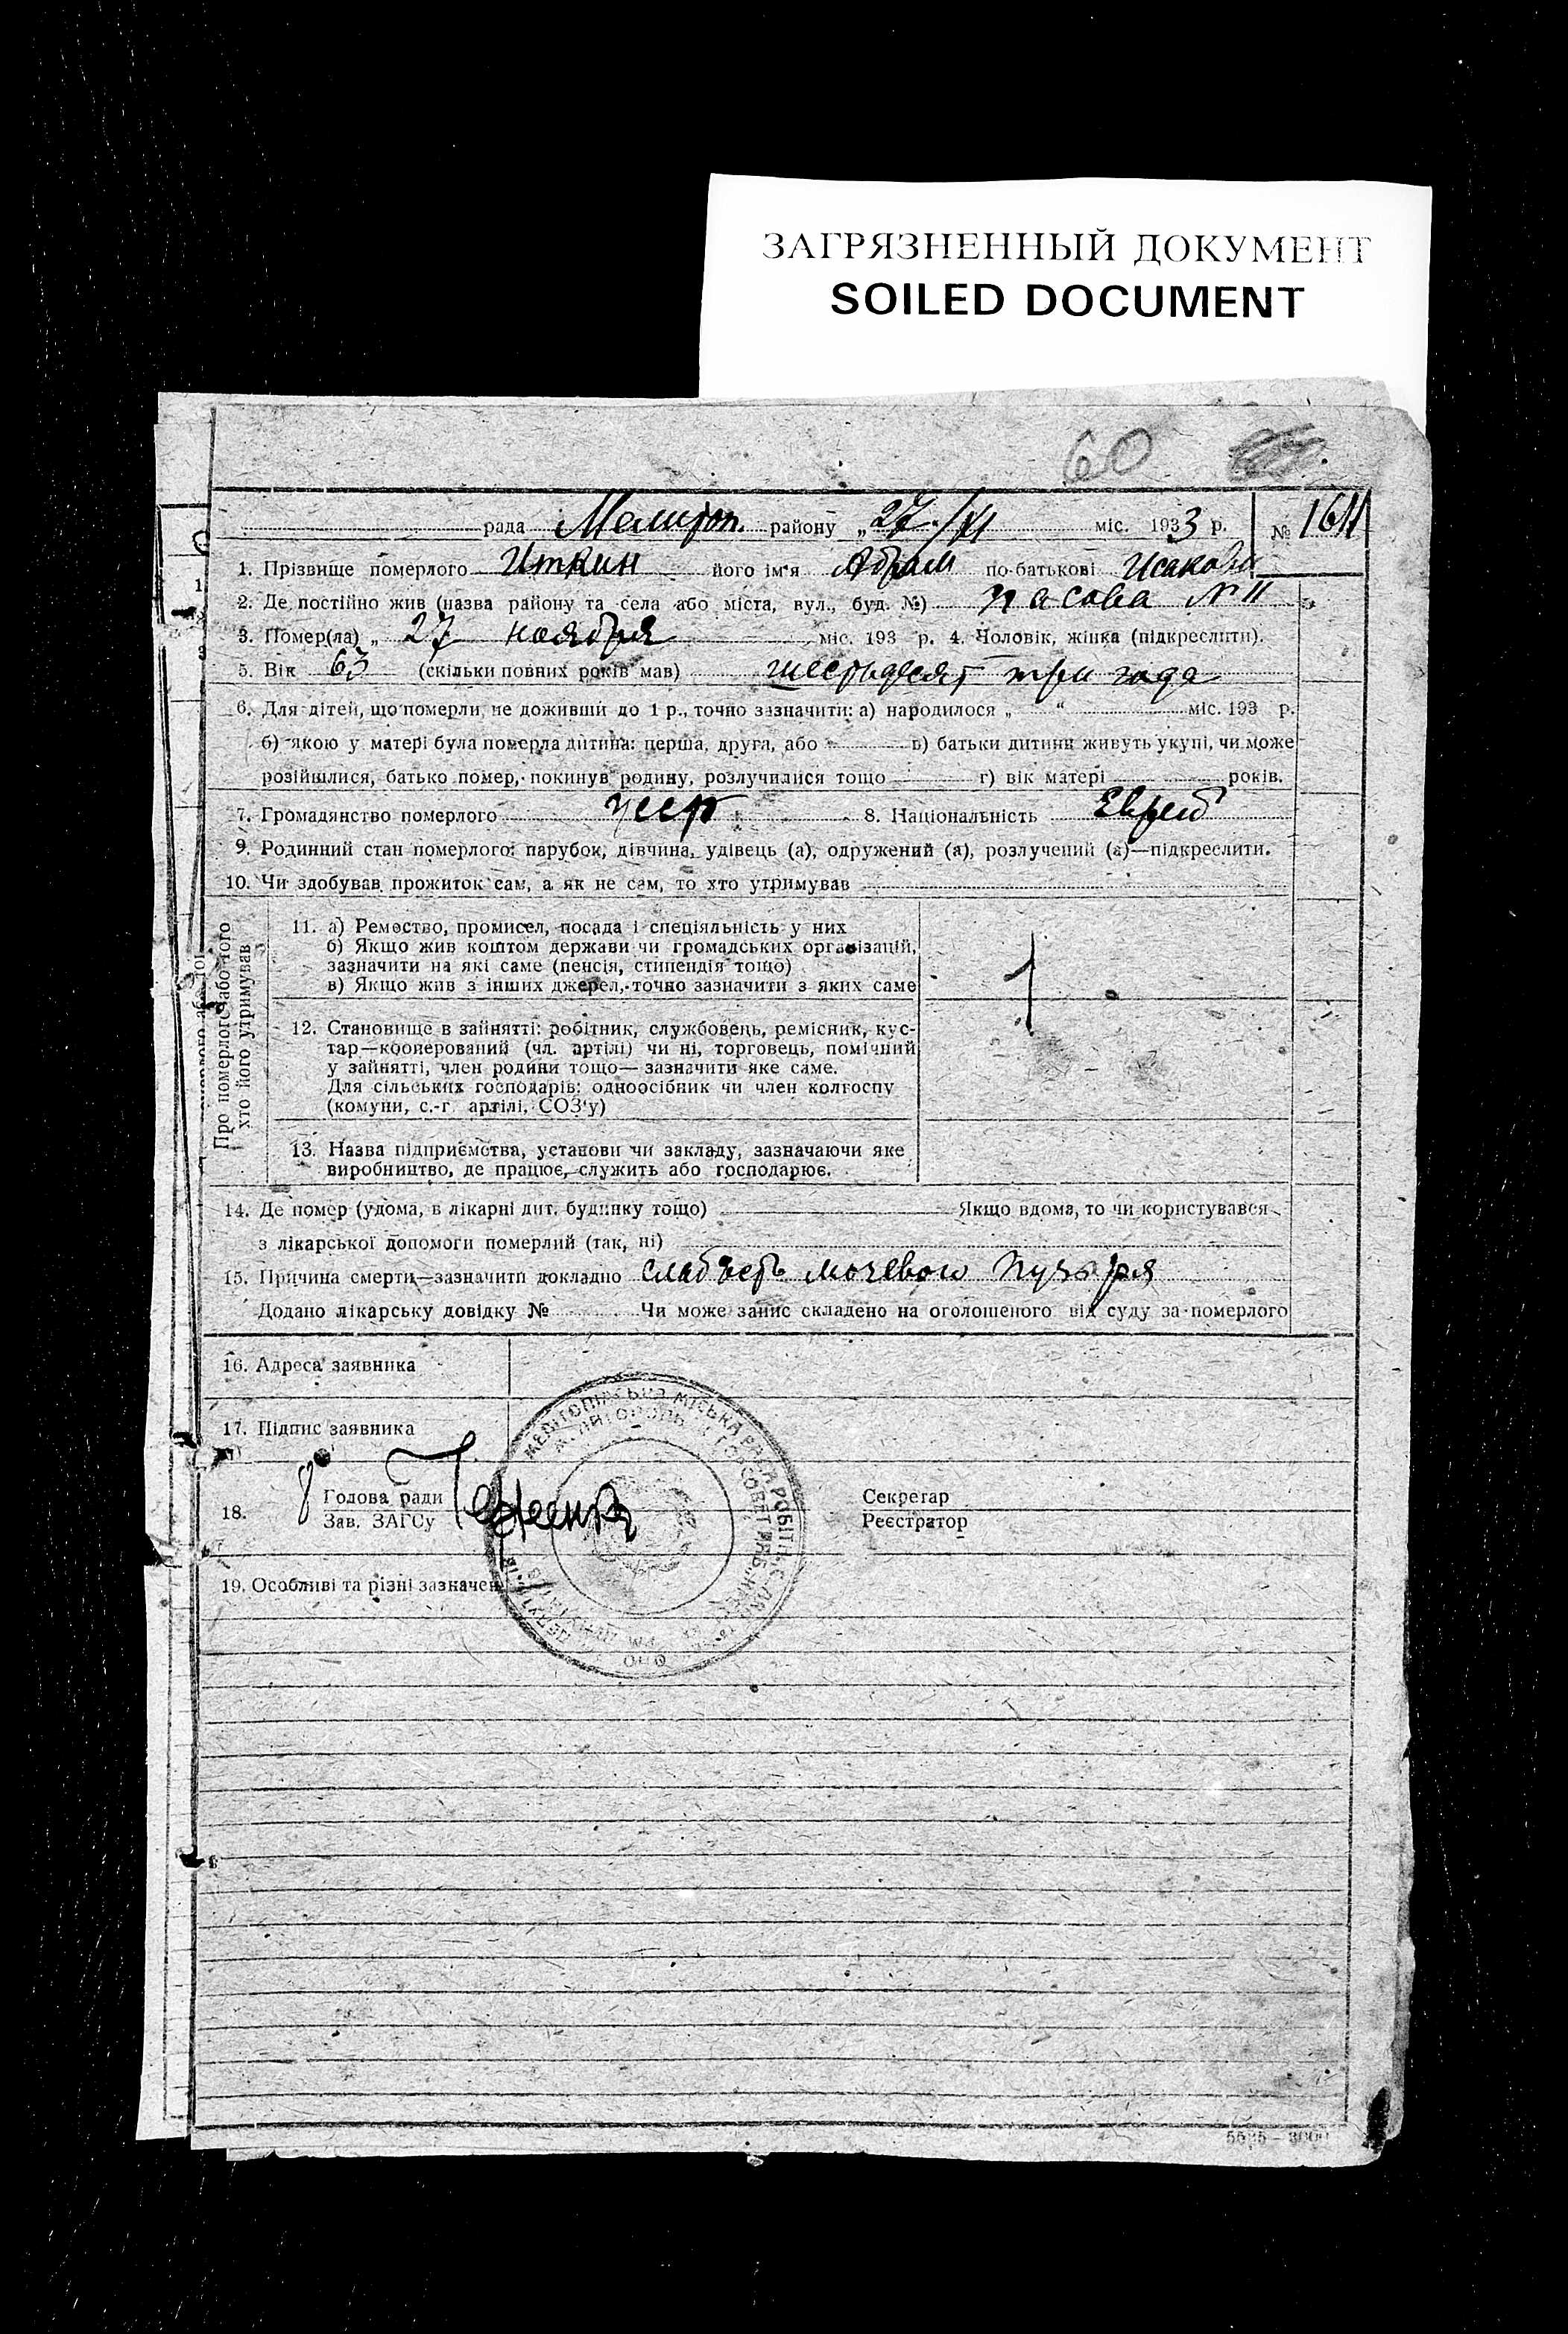 ЗАГРЯЗНЕННЫЙ ДОКУМЕНТ
SOILED DOCUMENT
60
рада Мелитоп. району „27/XI міс. 1933 р. №
1. Прізвище померлого Иткин його ім'я Абрам по батькові
2. Де постійно жив (назва району та села або міста, вул., буд. №) № 11
3. Помер(ла) „ 27 ноября міс. 193 р. 4. Чоловік, жінка (підкреслити).
5. Вік 63 (скільки повних років мав) шестьдесят три года
6. Для дітей, що померли, не доживши до 1 р., точно зазначити: а) народилося „ “ міс. 193 р.
б) якою у матері була померла дитина: перша, друга, або в) батьки дитини живуть укупі, чи може
розійшлися, батько помер, покинув родину, розлучилися тощо г) вік матері років.
7. Громадянство померлого УССР 8. Національність Еврей
9. Родинний стан померлого: парубок, дівчина, удівець (а), одружений (а), розлучений (а)—підкреслити.
10. Чи здобував прожиток сам, а як не сам, то хто утримував
Про померлого або того
хто його утримував
11. а) Ремество, промисел, посада і спеціяльність у них
б) Якщо жив коштом держави чи громадських організацій,
зазначити на які саме (пенсія, стипендія тощо)
в) Якщо жив з інших джерел, точно зазначити з яких саме
12. Становище в зайнятті: робітник, службовець, ремісник, кус-
тар—кооперований (чл. артілі) чи ні, торговець, помічний
у зайнятті, член родини тощо— зазначити яке саме.
Для сільських господарів: одноосібник чи член колгоспу
(комуни, с.-г артілі, СОЗ'у)
13. Назва підприємства, установи чи закладу, зазначаючи яке
виробництво, де працює, служить або господарює.
14. Де помер (удома, в лікарні дит. будинку тощо) Якщо вдома, то чи користувався
з лікарської допомоги померлий (так, ні)
15. Причина смерти—зазначити докладно слабость мочевого пузыря
Додано лікарську довідку № Чи може запис складено на оголошеного від суду за померлого
16. Адреса заявника
17. Підпис заявника
18. Голова ради
Зав. ЗАГСу
Секретар
Реєстратор
МЕЛІТОПІЛЬСЬКА МІСЬКА РАДА
19. Особливі та різні зазначен